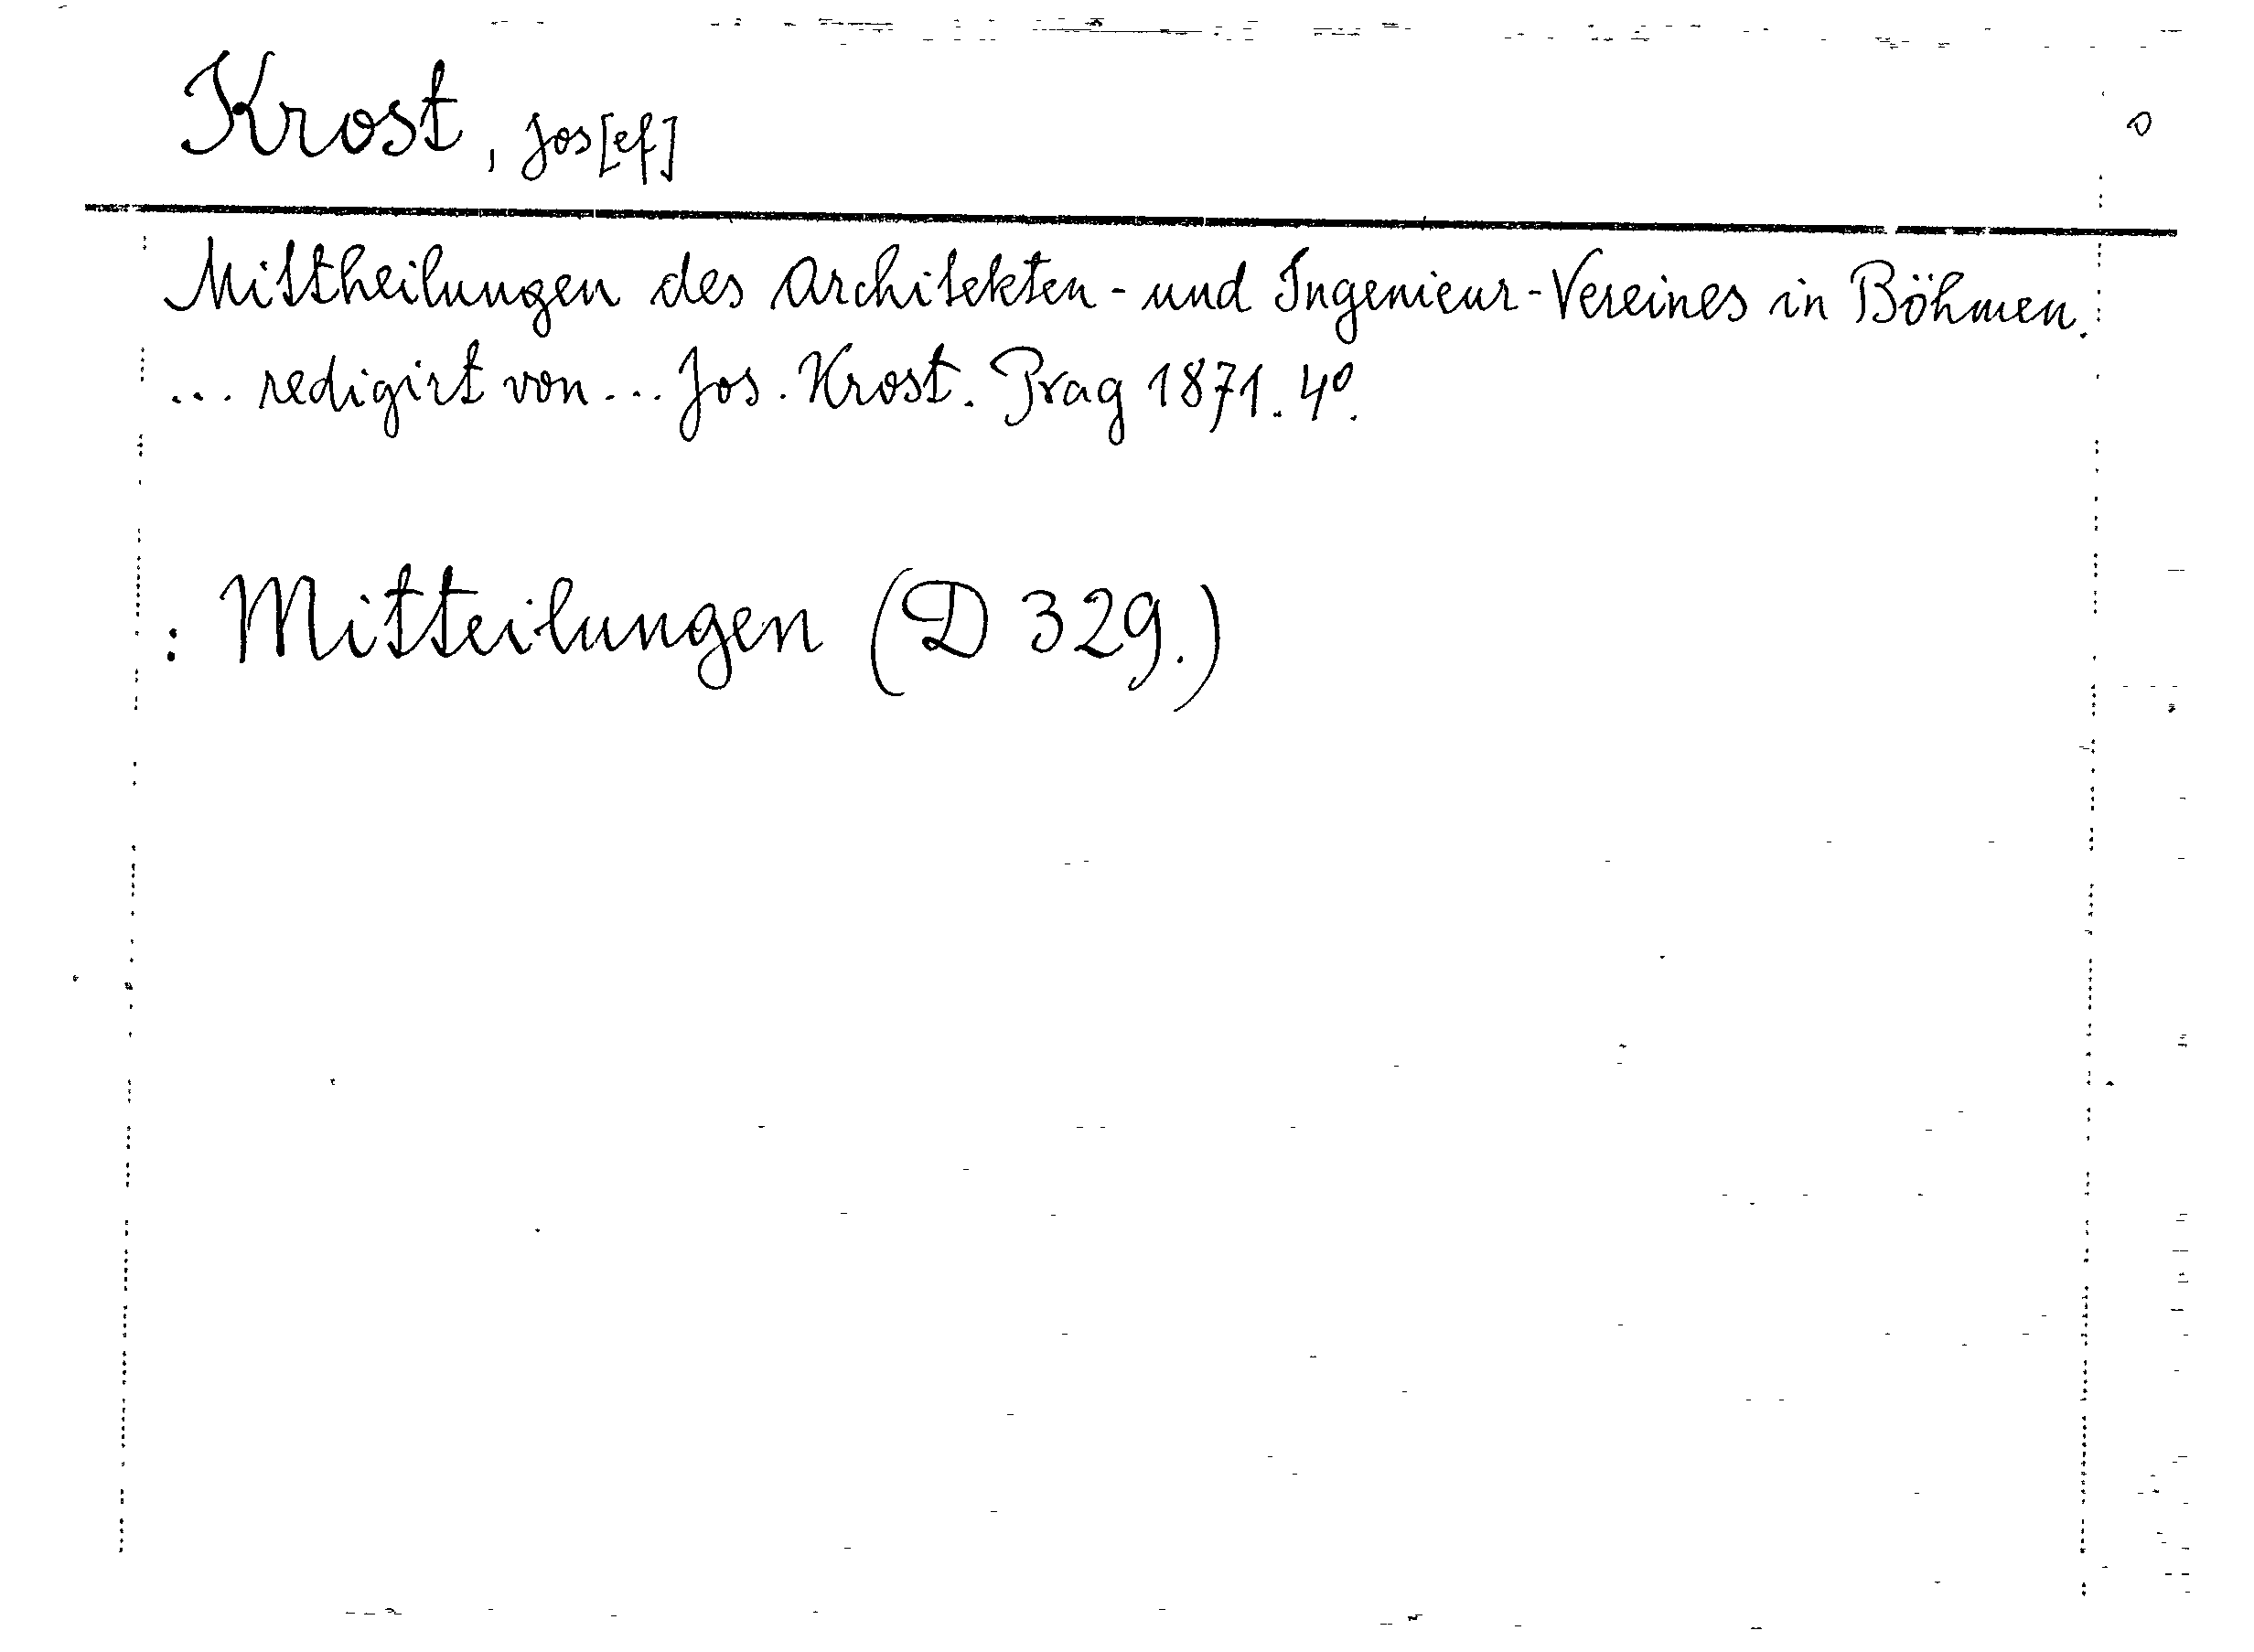 Krost, Jos[ef]
Mittheilungen des Architekten- und Ingenieur-Vereines in Böhmen.
... redigirt von ... Jos. Krost. Prag 1871. 4°.
: Mitteilungen (D 329.)